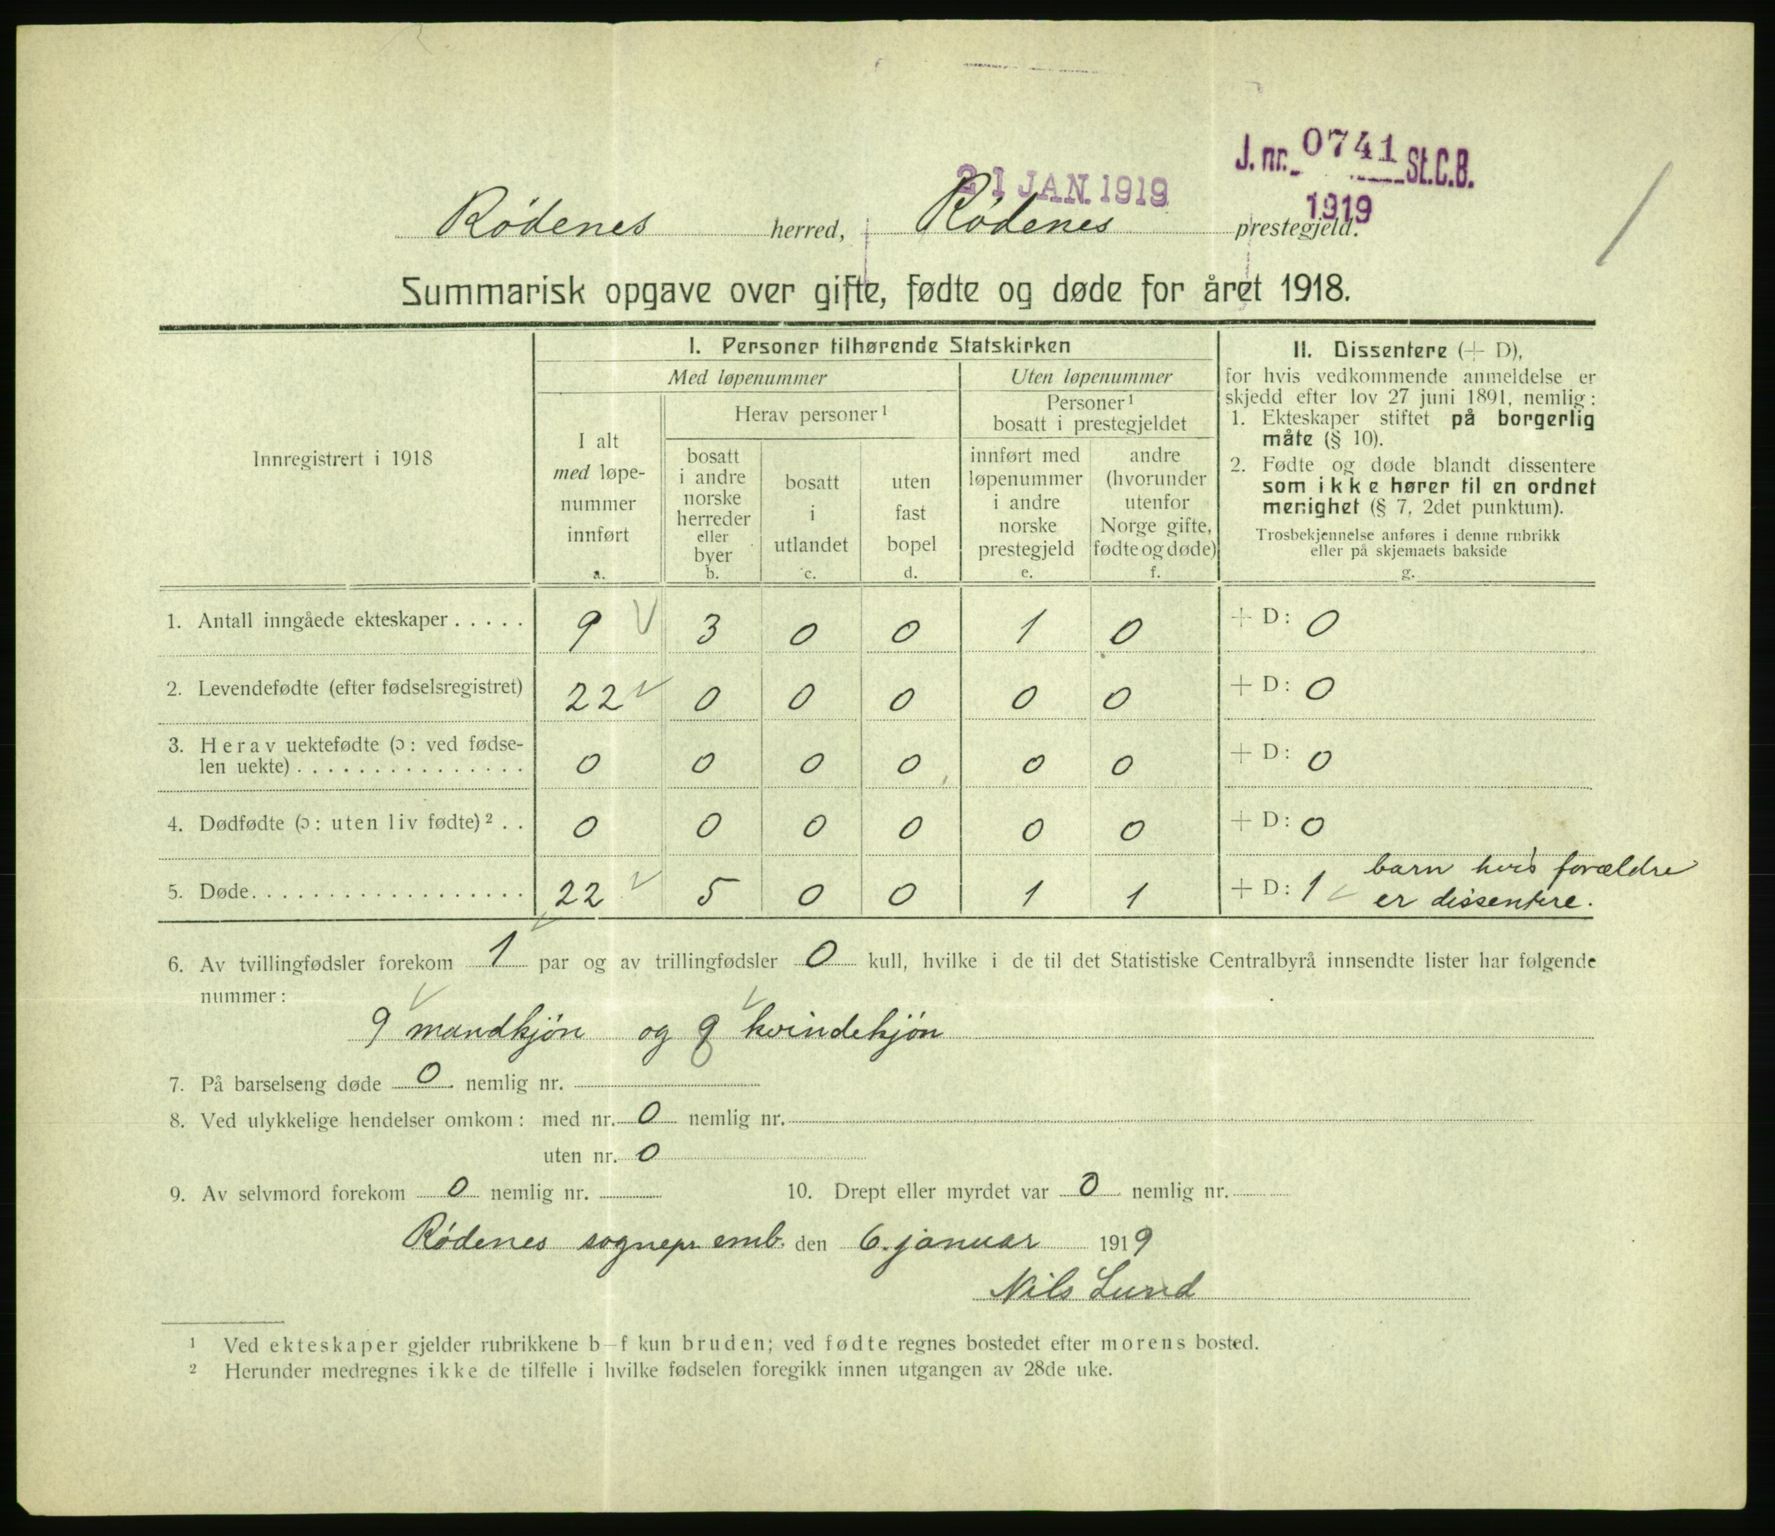 J. nr. 0741 St.C.B.
21 JAN. 1919
1919
Rødenes herred, Rødenes prestegjeld.
Summarisk opgave over gifte, fødte og døde for året 1918.
Innregistrert i 1918
I. Personer tilhørende Statskirken
Med løpenummer
Uten løpenummer
I alt
med løpe-
nummer
innført
a.
Herav personer 1
bosatt
i andre
norske
herreder
eller
byer
b.
bosatt
i
utlandet
c.
uten
fast
bopel
d.
Personer 1
bosatt i prestegjeldet
innført med
løpenummer
i andre
norske
prestegjeld
e.
andre
(hvorunder
utenfor
Norge gifte,
fødte og døde)
f.
II. Dissentere (+ D),
for hvis vedkommende anmeldelse er
skjedd efter lov 27 juni 1891, nemlig:
1. Ekteskaper stiftet på borgerlig
måte (§ 10).
2. Fødte og døde blandt dissentere
som ikke hører til en ordnet
menighet (§ 7, 2det punktum).
Trosbekjennelse anføres i denne rubrikk
eller på skjemaets bakside
g.
1. Antall inngåede ekteskaper . . . . . 9 3 0 0 1 0 + D: 0
2. Levendefødte (efter fødselsregistret) 22 0 0 0 0 0 + D: 0
3. Herav uektefødte (ɔ: ved fødse-
len uekte) . . . . . . . . . . . . . . . 0 0 0 0 0 0 + D: 0
4. Dødfødte (ɔ: uten liv fødte) 2 . . 0 0 0 0 0 0 + D: 0
5. Døde. . . . . . . . . . . . . . . . . . 22 5 0 0 1 1 + D: 1 barn hvis forældre
er dissentere.
6. Av tvillingfødsler forekom 1 par og av trillingfødsler 0 kull, hvilke i de til det Statistiske Centralbyrå innsendte lister har følgende
nummer:
9 mandkjøn og 9 kvindekjøn
7. På barselseng døde 0 nemlig nr.
8. Ved ulykkelige hendelser omkom: med nr. 0 nemlig nr.
uten nr. 0
9. Av selvmord forekom 0 nemlig nr. 10. Drept eller myrdet var 0 nemlig nr.
Rødenes sognepr.emb. den 6. januar 1919
Nils Lund
1 Ved ekteskaper gjelder rubrikkene b–f kun bruden; ved fødte regnes bostedet efter morens bosted.
2 Herunder medregnes ikke de tilfelle i hvilke fødselen foregikk innen utgangen av 28de uke.